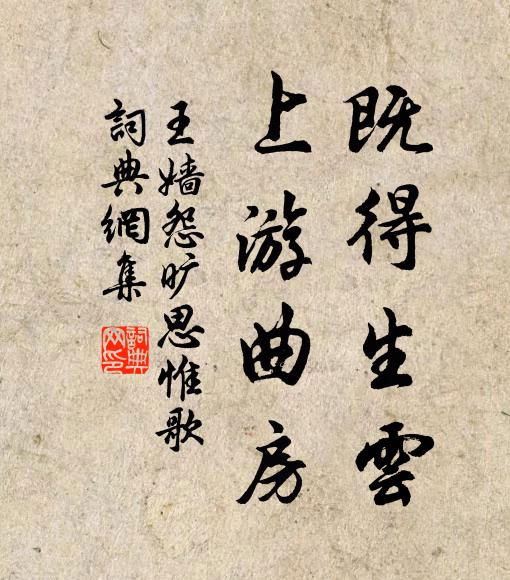 既得生雲
上游曲房
王嬙怨旷思惟歌
詞典網集
詞典網印